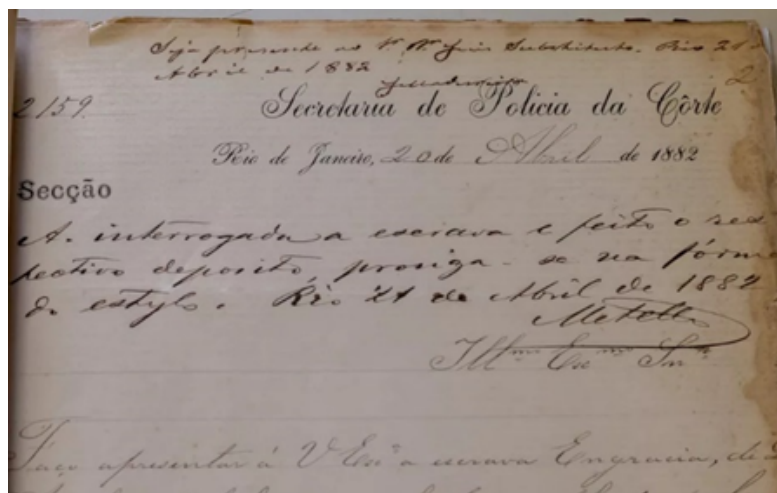 Seja presente ao Sr. Dr. Juiz Substituto. Rio 21 d
Abril de 1882
2
2159
Secretaria de Policia da Côrte
Rio de Janeiro, 20 de Abril de 1882
Secção
A. interrogada a escrava e feito o res
pectivo deposito, prosiga-se na fórma
do estylo. Rio 21 de Abril de 1882
Metello
Illmo Exmo Snr
Faço apresentar á V Exa a escrava Engracia, de